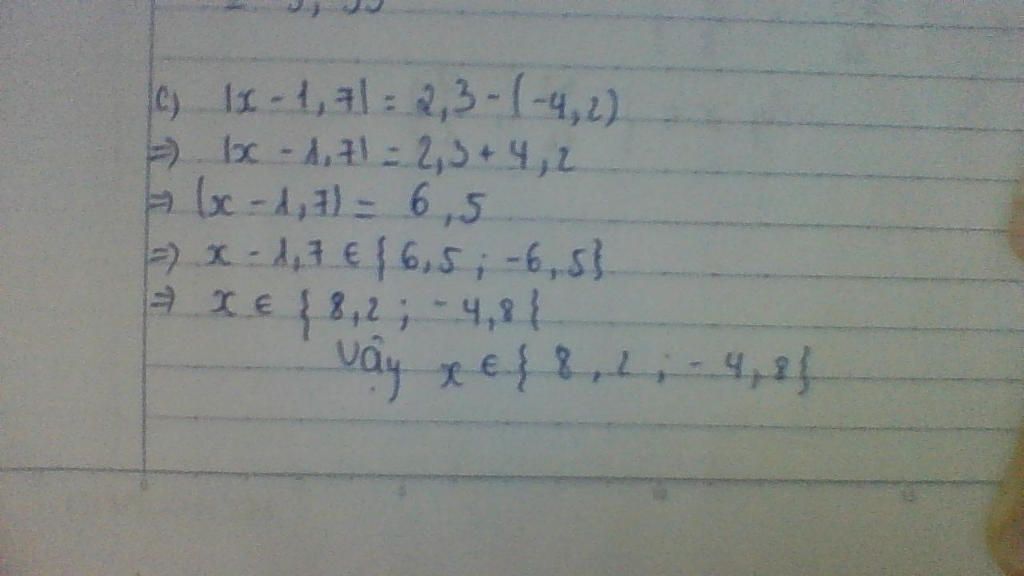 c) |x - 1,7| = 2,3 - (-4,2)
=> |x - 1,7| = 2,3 + 4,2
=> |x - 1,7| = 6,5
=> x - 1,7 ∈ {6,5 ; -6,5}
=> x ∈ {8,2 ; -4,8}
Vậy x ∈ {8,2 ; -4,8}
0 5 10 15